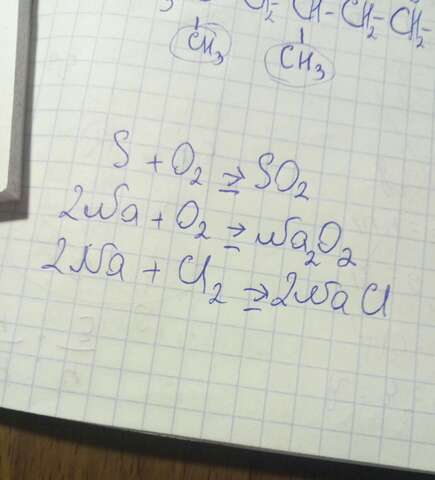 CH₂ CH-CH₂-CH₂-
CH₃ CH₃
S + O₂ ⇒ SO₂
2Na + O₂ ⇒ Na₂O₂
2Na + Cl₂ ⇒ 2NaCl